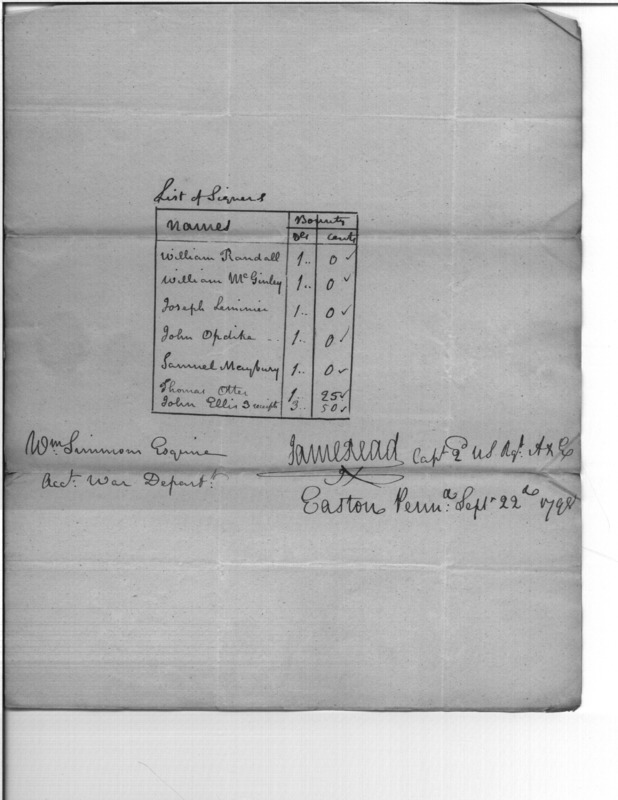 List of Signers
Names Bounty
Dls Cents
William Randall 1.. 0 ✓
William McGinley 1.. 0 ✓
Joseph 1.. 0 ✓
John Opdike .. 1.. 0 ✓
Samuel Maybury 1.. 0 ✓
Thomas Otter 1 25 ✓
John Ellis 3 receipts 3.. 50 ✓
Wm Simmons Esquire
Acct. War Departt.
James Read Capt. 2d US Regt. A & E
Easton Penna. Sept. 22nd 1798